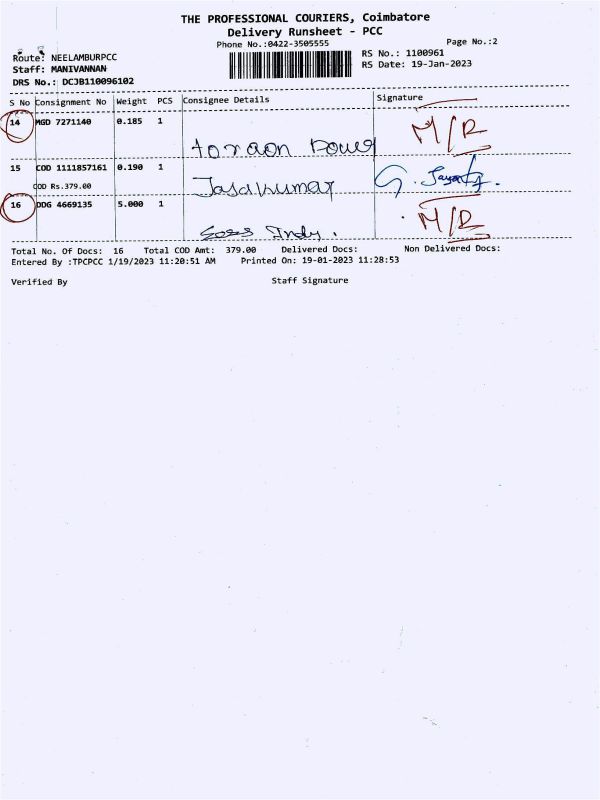 THE PROFESSIONAL COURIERS, Coimbatore
Delivery Runsheet - PCC
Phone No.:0422-3505555
Page No.:2
Route: NEELAMBURPCC
RS No.: 1100961
Staff: MANIVANNAN
RS Date: 19-Jan-2023
DRS No.: DCJB110096102
S No Consignment No Weight PCS Consignee Details Signature
14 MGD 7271140 0.185 1 M/R
15 COD 1111857161 0.190 1
COD Rs.379.00 Jasakumar
16 DDG 4669135 5.000 1 M/R
Total No. Of Docs: 16 Total COD Amt: 379.00 Delivered Docs: Non Delivered Docs:
Entered By :TPCPCC 1/19/2023 11:20:51 AM Printed On: 19-01-2023 11:28:53
Verified By Staff Signature